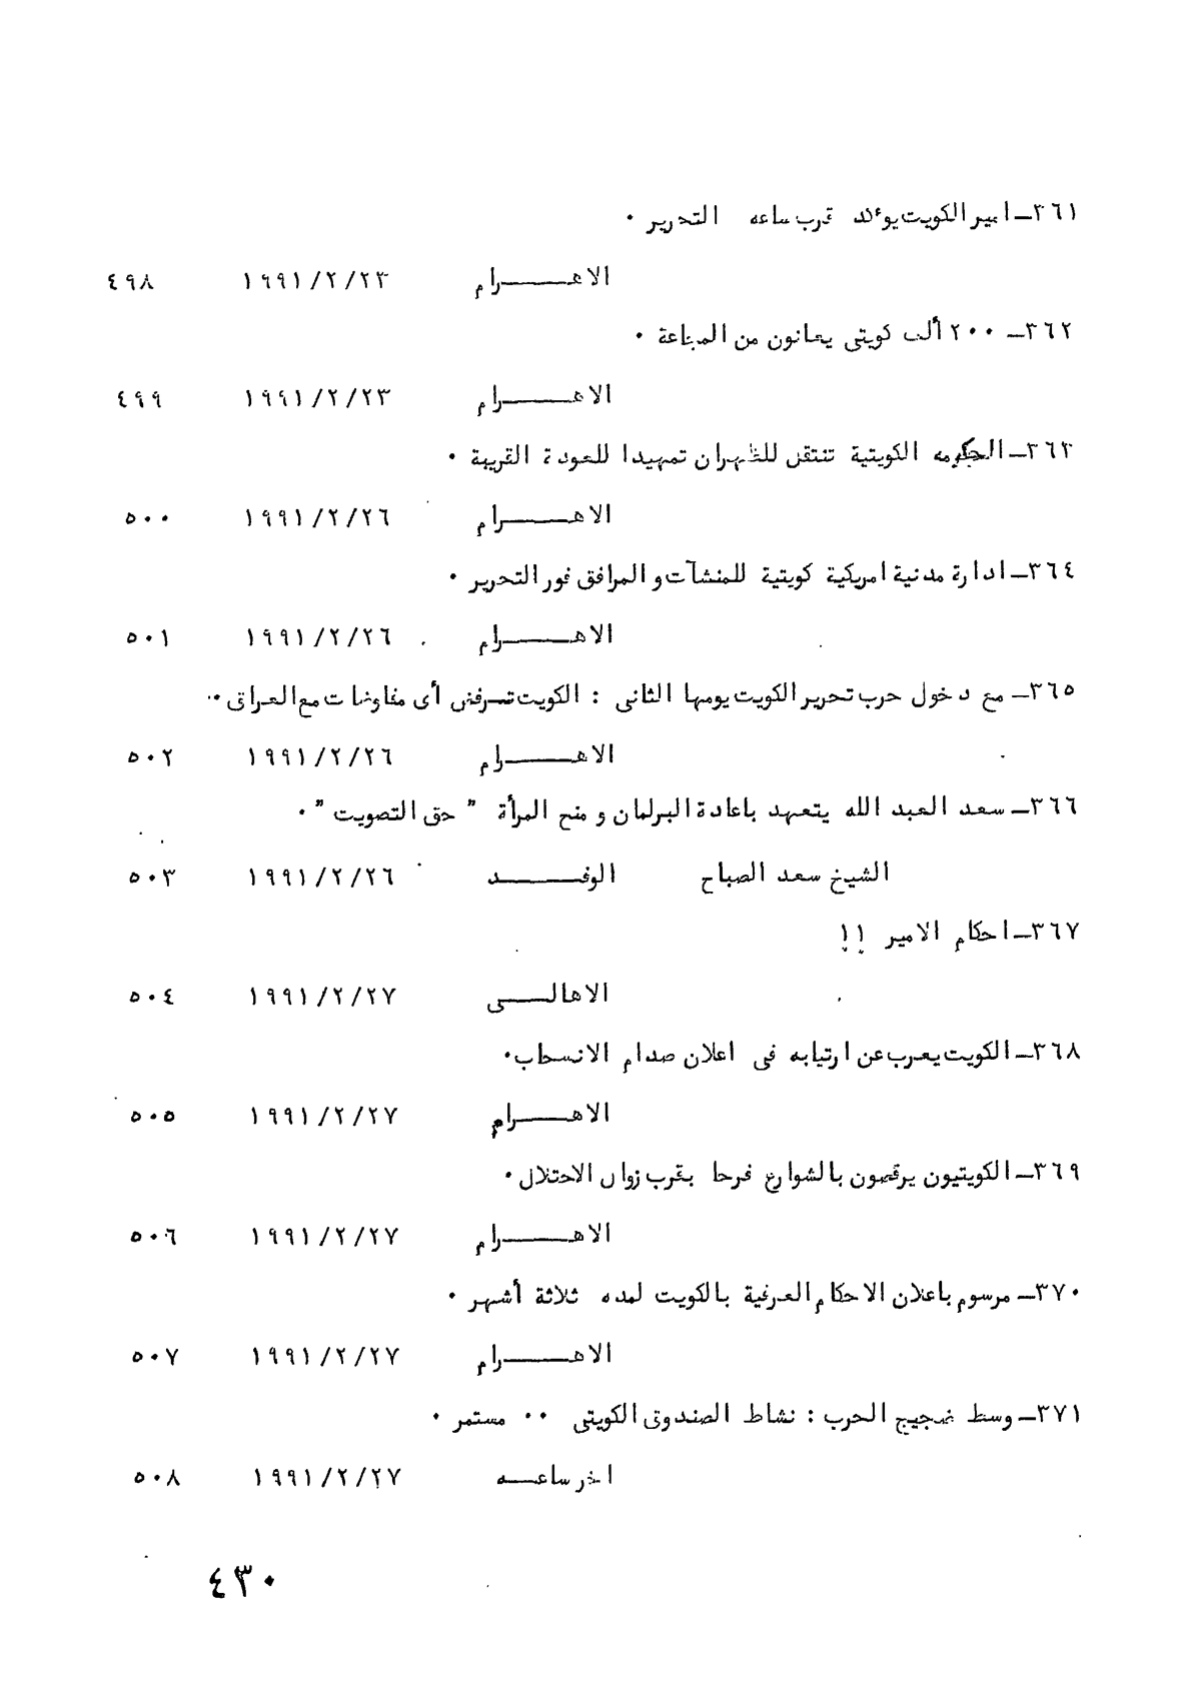 ٣٦١ـ امير الكويت يوءكد قرب ساعه التحرير ٠
الاهـــــرام ١٩٩١/٢/٢٣ ٤٩٨
٣٦٢ـ ٢٠٠ ألف كويتى يعانون من المجاعة ٠
الاهـــــرام ١٩٩١/٢/٢٣ ٤٩٩
٣٦٣ـ الحكومه الكويتية تنتقل للظهران تمهيدا للعودة القريبة ٠
الاهـــــرام ١٩٩١/٢/٢٦ ٥٠٠
٣٦٤ـ ادارة مدنية امريكية كويتية للمنشآت و المرافق فور التحرير ٠
الاهـــــرام ١٩٩١/٢/٢٦ ٥٠١
٣٦٥ـ مع دخول حرب تحرير الكويت يومها الثانى : الكويت تـرفض أى مفاوضات مع العراق ٠
الاهـــــرام ١٩٩١/٢/٢٦ ٥٠٢
٣٦٦ـ سعد العبد الله يتعهد باعادة البرلمان و منح المرأة " حق التصويت " ٠
الشيخ سعد الصباح الوفـــــد ١٩٩١/٢/٢٦ ٥٠٣
٣٦٧ـ احكام الامير !!
الاهالـــى ١٩٩١/٢/٢٧ ٥٠٤
٣٦٨ـ الكويت يعرب عن ارتيابه فى اعلان صدام الانسحاب ٠
الاهـــــرام ١٩٩١/٢/٢٧ ٥٠٥
٣٦٩ـ الكويتيون يرقصون بالشوارع فرحا بقرب زوال الاحتلال ٠
الاهـــــرام ١٩٩١/٢/٢٧ ٥٠٦
٣٧٠ـ مرسوم باعلان الاحكام العرفية بالكويت لمده ثلاثة أشهر ٠
الاهـــــرام ١٩٩١/٢/٢٧ ٥٠٧
٣٧١ـ وسط ضجيج الحرب : نشاط الصندوق الكويتى ٠٠ مستمر ٠
اخر ساعـــه ١٩٩١/٢/٢٧ ٥٠٨
٤٣٠